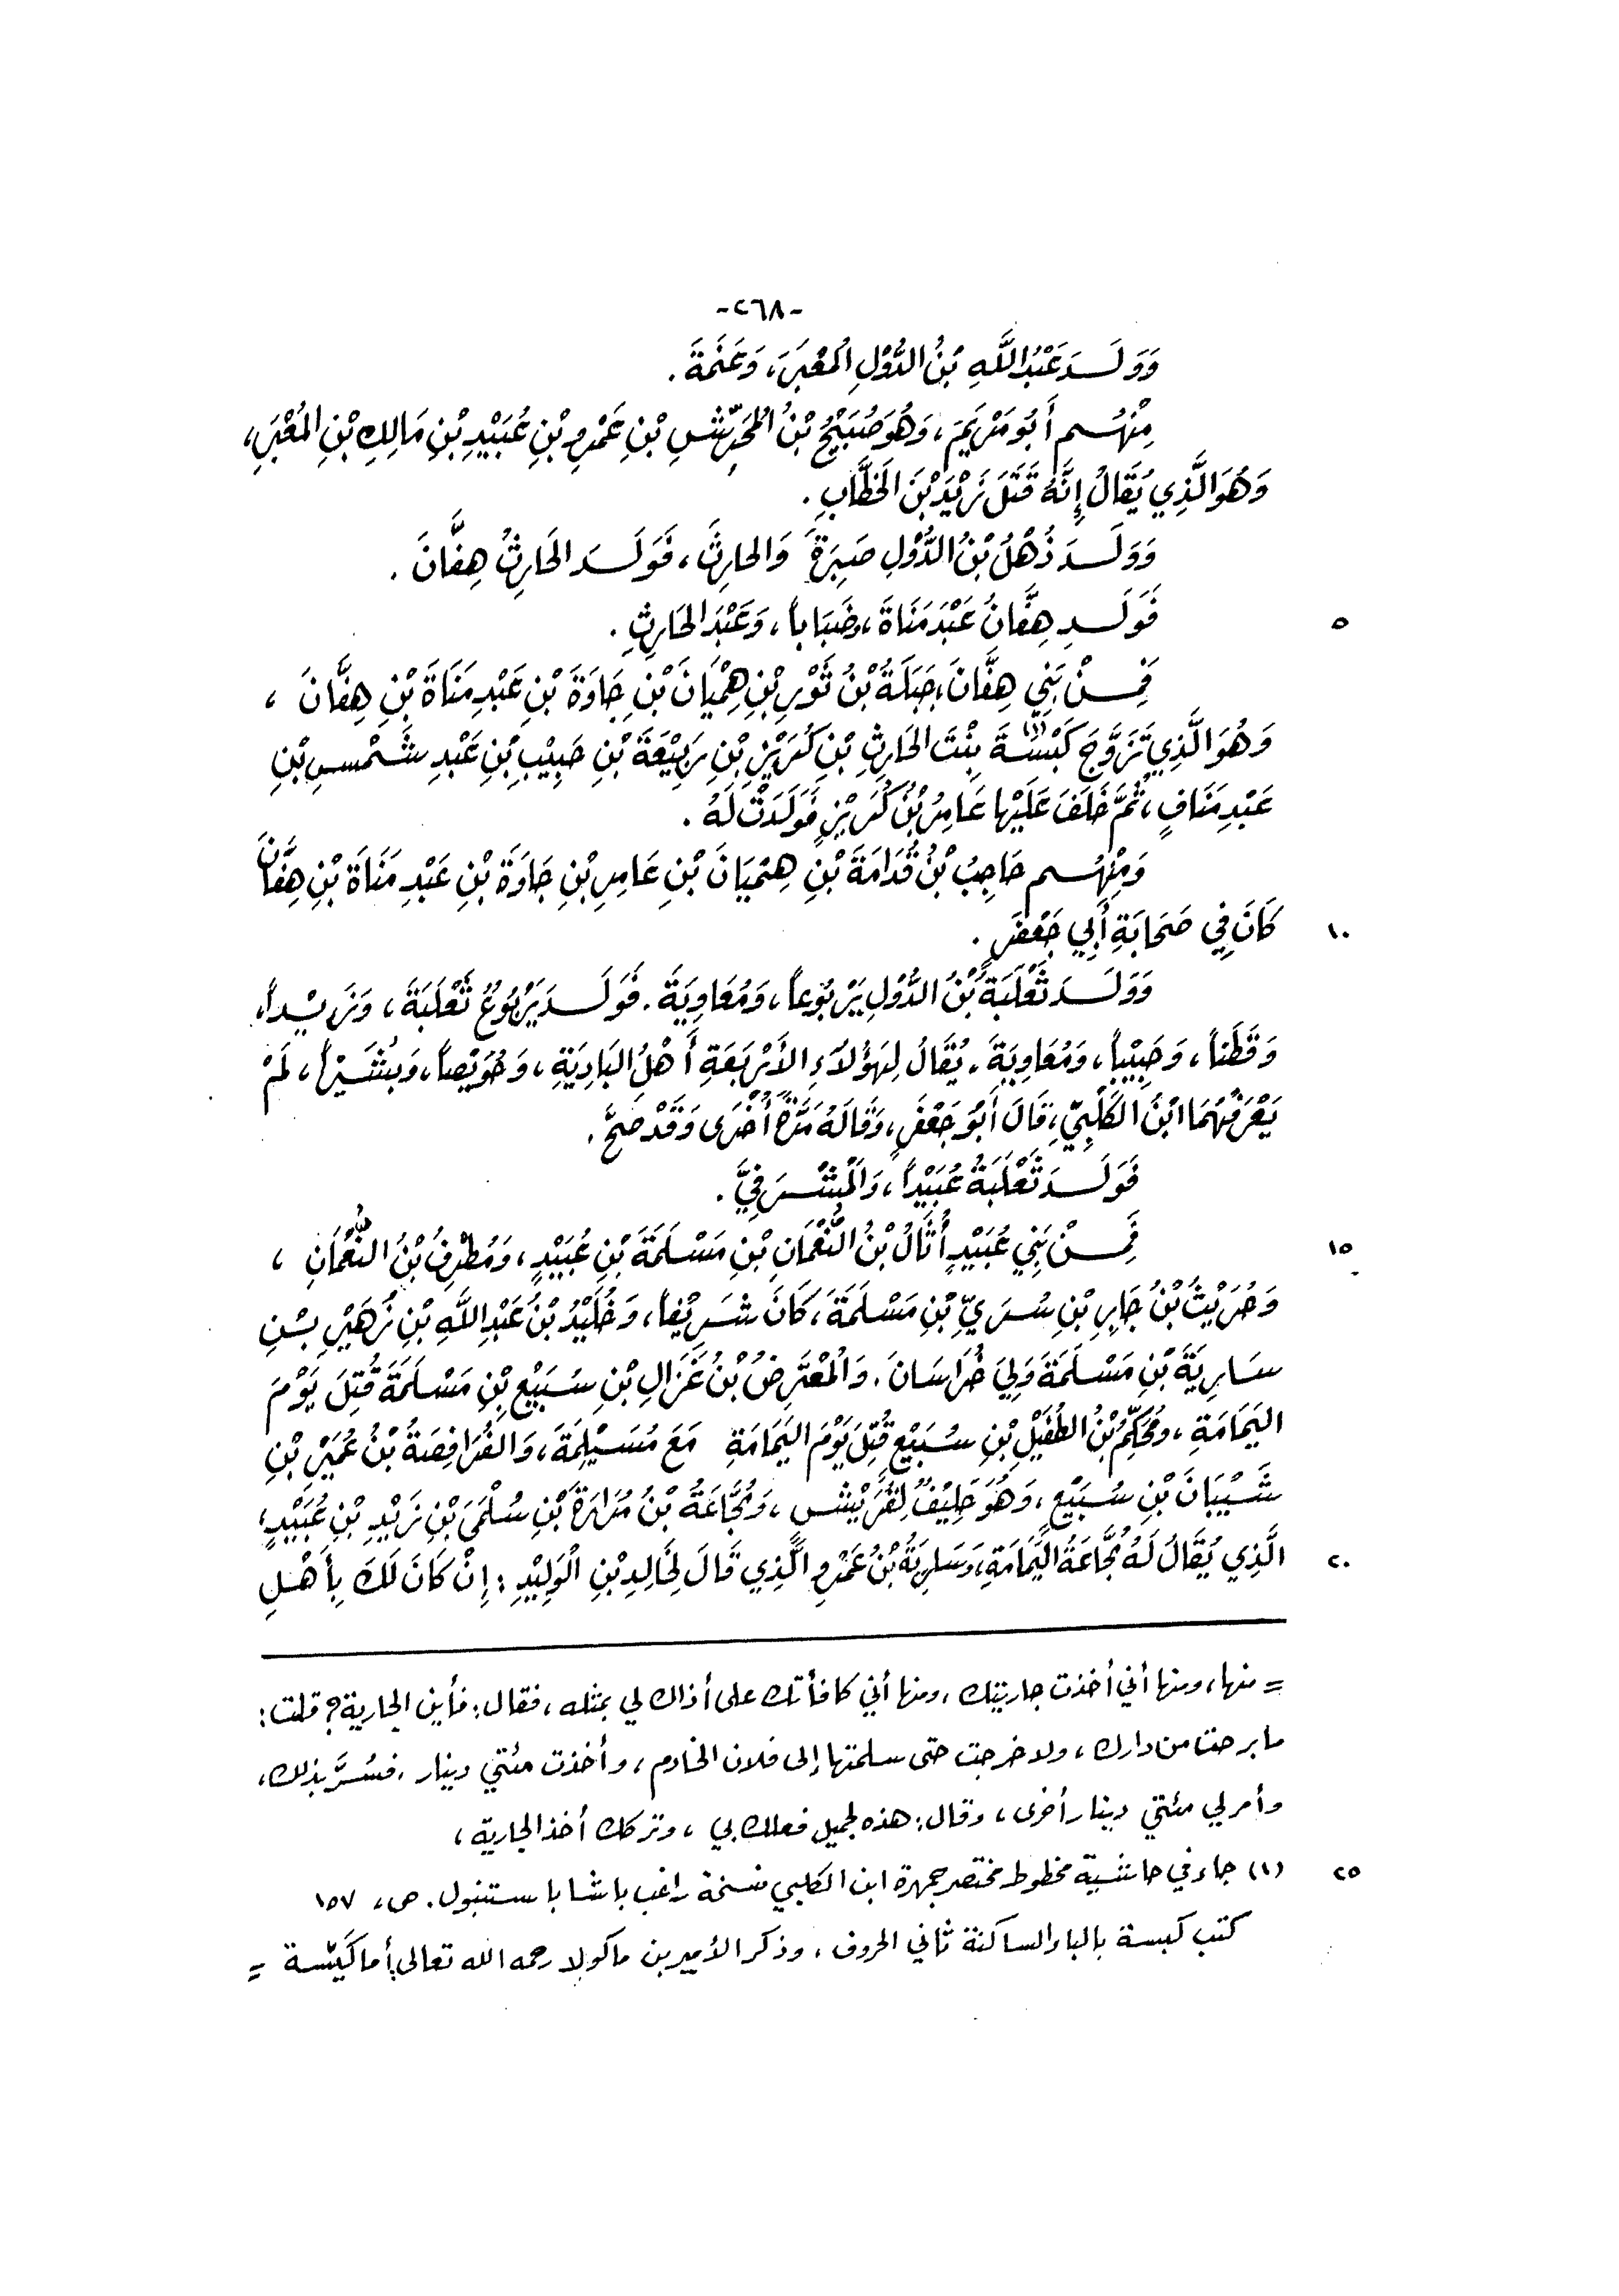 -٢٦٨-
وَوَلَــدَ عَبْدُ اللَّهِ بْنُ الدُّوْلِ المُعْبَرَ، وَعَنَمَةَ.
مِنْهُــم أَبُو مَرْيَمَ، وَهُوَ صُبَيْحُ بْنُ المُحَرِّشِ بْنِ عَمْرِو بْنِ عُبَيْدِ بْنِ مَالِكِ بْنِ المُعْبَرِ،
وَهُوَ الَّذِي يُقَالُ إِنَّهُ قَتَلَ زَيْدَ بْنَ الخَطَّابِ.
وَوَلَــدَ ذُهْلُ بْنُ الدُّوْلِ صَبِرَةَ وَالحارِثَ، فَوَلَــدَ الحَارِثُ هِفَّانَ.
٥ فَوَلَــدَ هِفَّانُ عَبْدَ مَنَاةَ، وَضَبَاباً، وَعَبْدَ الحَارِثِ.
فَمِــنْ بَنِي هِفَّانَ، جَبَلَةُ بْنُ ثَوْرِ بْنِ هِمْيَانَ بْنِ جَاوَةَ بْنِ عَبْدِ مَنَاةَ بْنِ هِفَّانَ ،
وَهُوَ الَّذِي تَزَوَّجَ كَبْسَةَ (١) بِنْتَ الحَارِثِ بْنِ كُرَيْزِ بْنِ رَبِيْعَةَ بْنِ حَبِيْبِ بْنِ عَبْدِ شَــمْسِ بْنِ
عَبْدِ مَنَافٍ، ثُمَّ خَلَفَ عَلَيْها عَامِرُ بْنُ كُرَيْزٍ فَوَلَدَتْ لَهُ.
وَمِنْهُــم حَاجِبُ بْنُ قُدَامَةَ بْنِ هِمْيَانَ بْنِ عَامِرِ بْنِ جَاوَةَ بْنِ عَبْدِ مَنَاةَ بْنِ هِفَّانَ
١٠ كَانَ فِي صَحَابَةِ أَبِي جَعْفَرٍ.
وَوَلَــدَ ثَعْلَبَةُ بْنُ الدُّوْلِ يَرْبُوعاً، وَمُعَاوِيَةَ. فَوَلَــدَ يَرْبُوعُ ثَعْلَبَةَ، وَزَيْــداً،
وَقَطَناً، وَحَبِيْباً، وَمُعَاوِيَةَ، يُقَالُ لِهَؤُلَاءِ الأَرْبَعَةِ أَهْلُ البَادِيَةِ، وَحُوَيْصاً، وَبُشَــيْراً، لَمْ
يَعْرَفْهُمَا ابْنُ الكَلْبِيِّ، قَالَ أَبُو جَعْفَرٍ، وَقَالَهُ مَرَّةً أُخْرَى وَقَدْ صَحَّ.
فَوَلَــدَ ثَعْلَبَةُ عُبَيْداً، وَالْمَشْــرَفِيَّ.
١٥ فَمِــنْ بَنِي عُبَيْدٍ أُثَالُ بْنُ النُّعْمَانِ بْنِ مَسْلَمَةَ بْنِ عُبَيْدٍ، وَمُطْرِفُ بْنُ النُّعْمَانِ ،
وَحُرَيْثُ بْنُ جَابِرِ بْنِ سُرَيِّ بْنِ مَسْلَمَةَ، كَانَ شَرِيْفاً، وَخُلَيْدُ بْنُ عَبْدِ اللَّهِ بْنِ زُهَيْرِ بْــنِ
سَارِيَةَ بْنِ مَسْلَمَةَ وَلِيَ خُرَاسَانَ. وَالْمُعْتَرِضُ بْنُ غَزَالِ بْنِ سُبَيْعِ بْنِ مَسْلَمَةَ قُتِلَ يَوْمَ
اليَمَامَةِ، وَمُحَكِّمُ بْنُ الطُّفَيْلِ بْنِ سُبَيْعٍ قُتِلَ يَوْمَ اليَمَامَةِ مَعَ مُسَــيْلِمَةَ، وَالفُرَافِصَةُ بْنُ عُمَيْرِ بْنِ
شَــيْبَانَ بْنِ سُبَيْعٍ، وَهُوَ حَلِيْفٌ لِقُرَيْشٍ، وَمُجَّاعَةُ بْنُ مُرَارَةَ بْنِ سُلْمَى بْنِ زَيْدِ بْنِ عُبَيْدٍ،
٢٠ الَّذِي يُقَالُ لَهُ مُجَّاعَةُ اليَمَامَةِ، وَسَارِيَةُ بْنُ عَمْرٍو الَّذِي قَالَ لِخَالِدِ بْنِ الْوَلِيْدِ: إِنْ كَانَ لَكَ بِأَهْــلِ
= منها، ومنها أني أخذت جاريتك، ومنها أني كافأتك على أذاك لي بمثله، فقال: فأين الجارية؟ قلت:
ما برحت من دارك، ولا خرجت حتى سلمتها إلى فلان الخادم، وأخذت مئتي دينار. فسُرَّ بذلك،
وأمر لي مئتي دينار أخرى، وقال: هذه لجميل فعلك بي، وتركك أخذ الجارية،
٢٥ (١) جاء في حاشية مخطوط مختصر جمهرة ابن الكلبي نسخة راغب باشا باستنبول. ص، ١٥٧
كتب كبسة بالباء الساكنة ثاني الحروف، وذكر الأمير بن ماكولا رحمه الله تعالى: أما كَيِّسة =